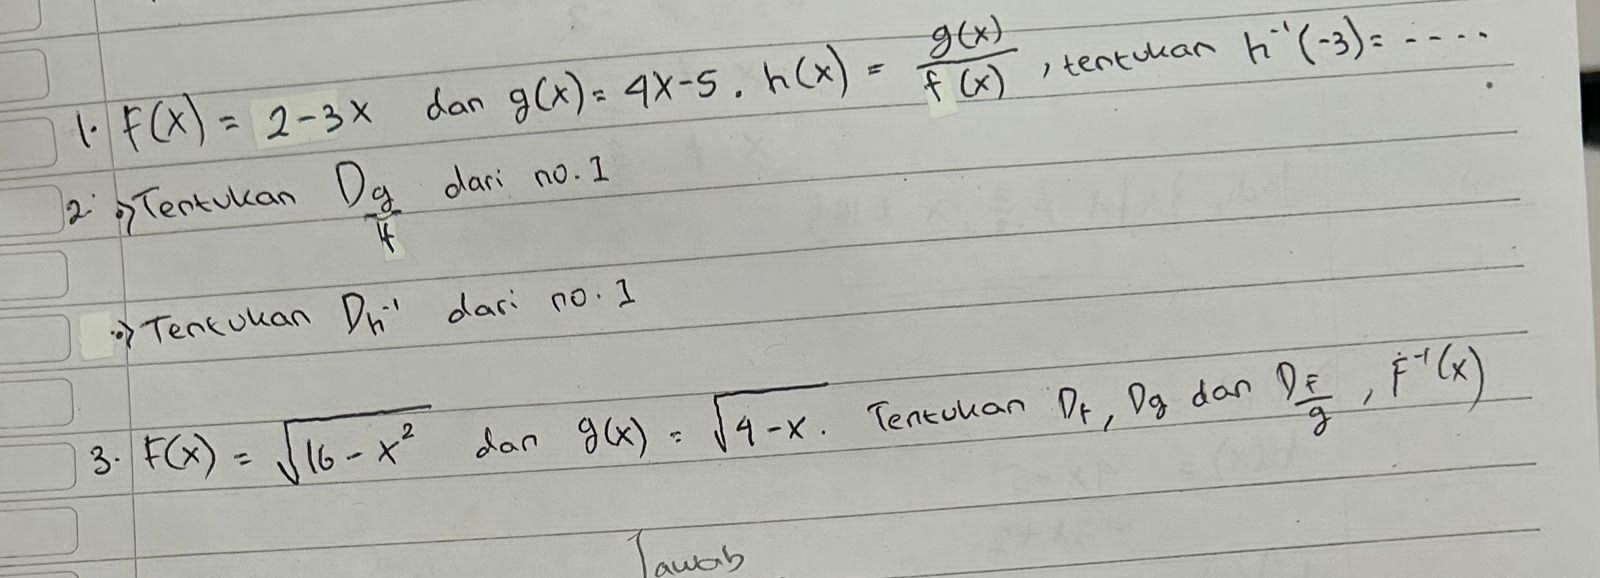 1. F(x) = 2-3x dan g(x) = 4x-5. h(x) = g(x)/f(x), tentukan h⁻¹(-3) = .....
2. •) Tentukan D g/f dari no. 1
•) Tentukan D h⁻¹ dari no. 1
3. F(x) = √(16-x²) dan g(x) = √(4-x). Tentukan Df, Dg dan D F/g, F⁻¹(x)
Jawab